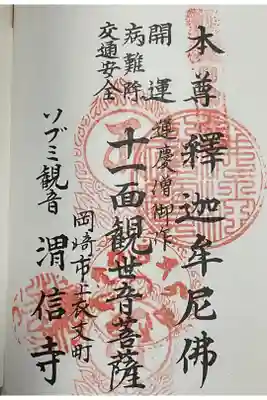 本尊釋迦牟尼佛
運慶僧御作
十一面観世音菩薩
開運
病難除
交通安全
岡崎市上衣文町
ソブミ観音 渭信寺